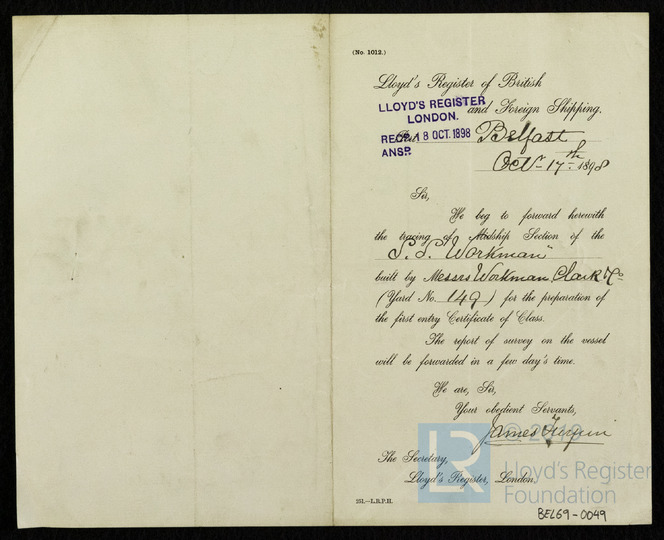 (No. 1012.)
Lloyd's Register of British
and Foreign Shipping.
LLOYD'S REGISTER
LONDON.
RECD. 18 OCT. 1898
ANSD.
Port Belfast
Octr. 17th 1898
Sir,
We beg to forward herewith
the tracing of Midship Section of the
S.S. "Workman"
built by Messrs Workman Clark & Co
(Yard No. 149) for the preparation of
the first entry Certificate of Class.
The report of survey on the vessel
will be forwarded in a few day's time.
We are, Sir,
Your obedient Servants,
James
The Secretary,
Lloyd's Register, London.
LR
© 2019
Lloyd's Register
Foundation
251.—L.R.P.H.
BEL69-0049